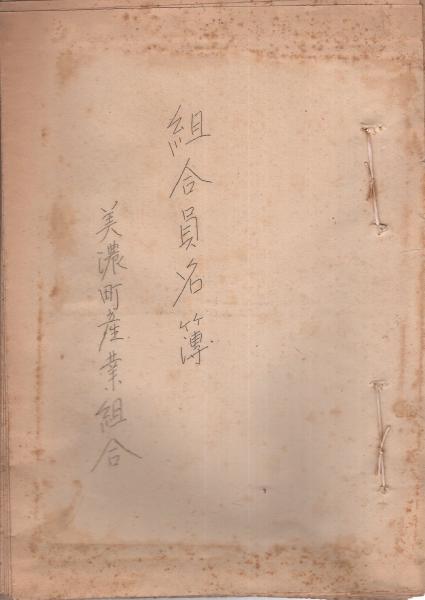 組合員名簿
美濃町産業組合